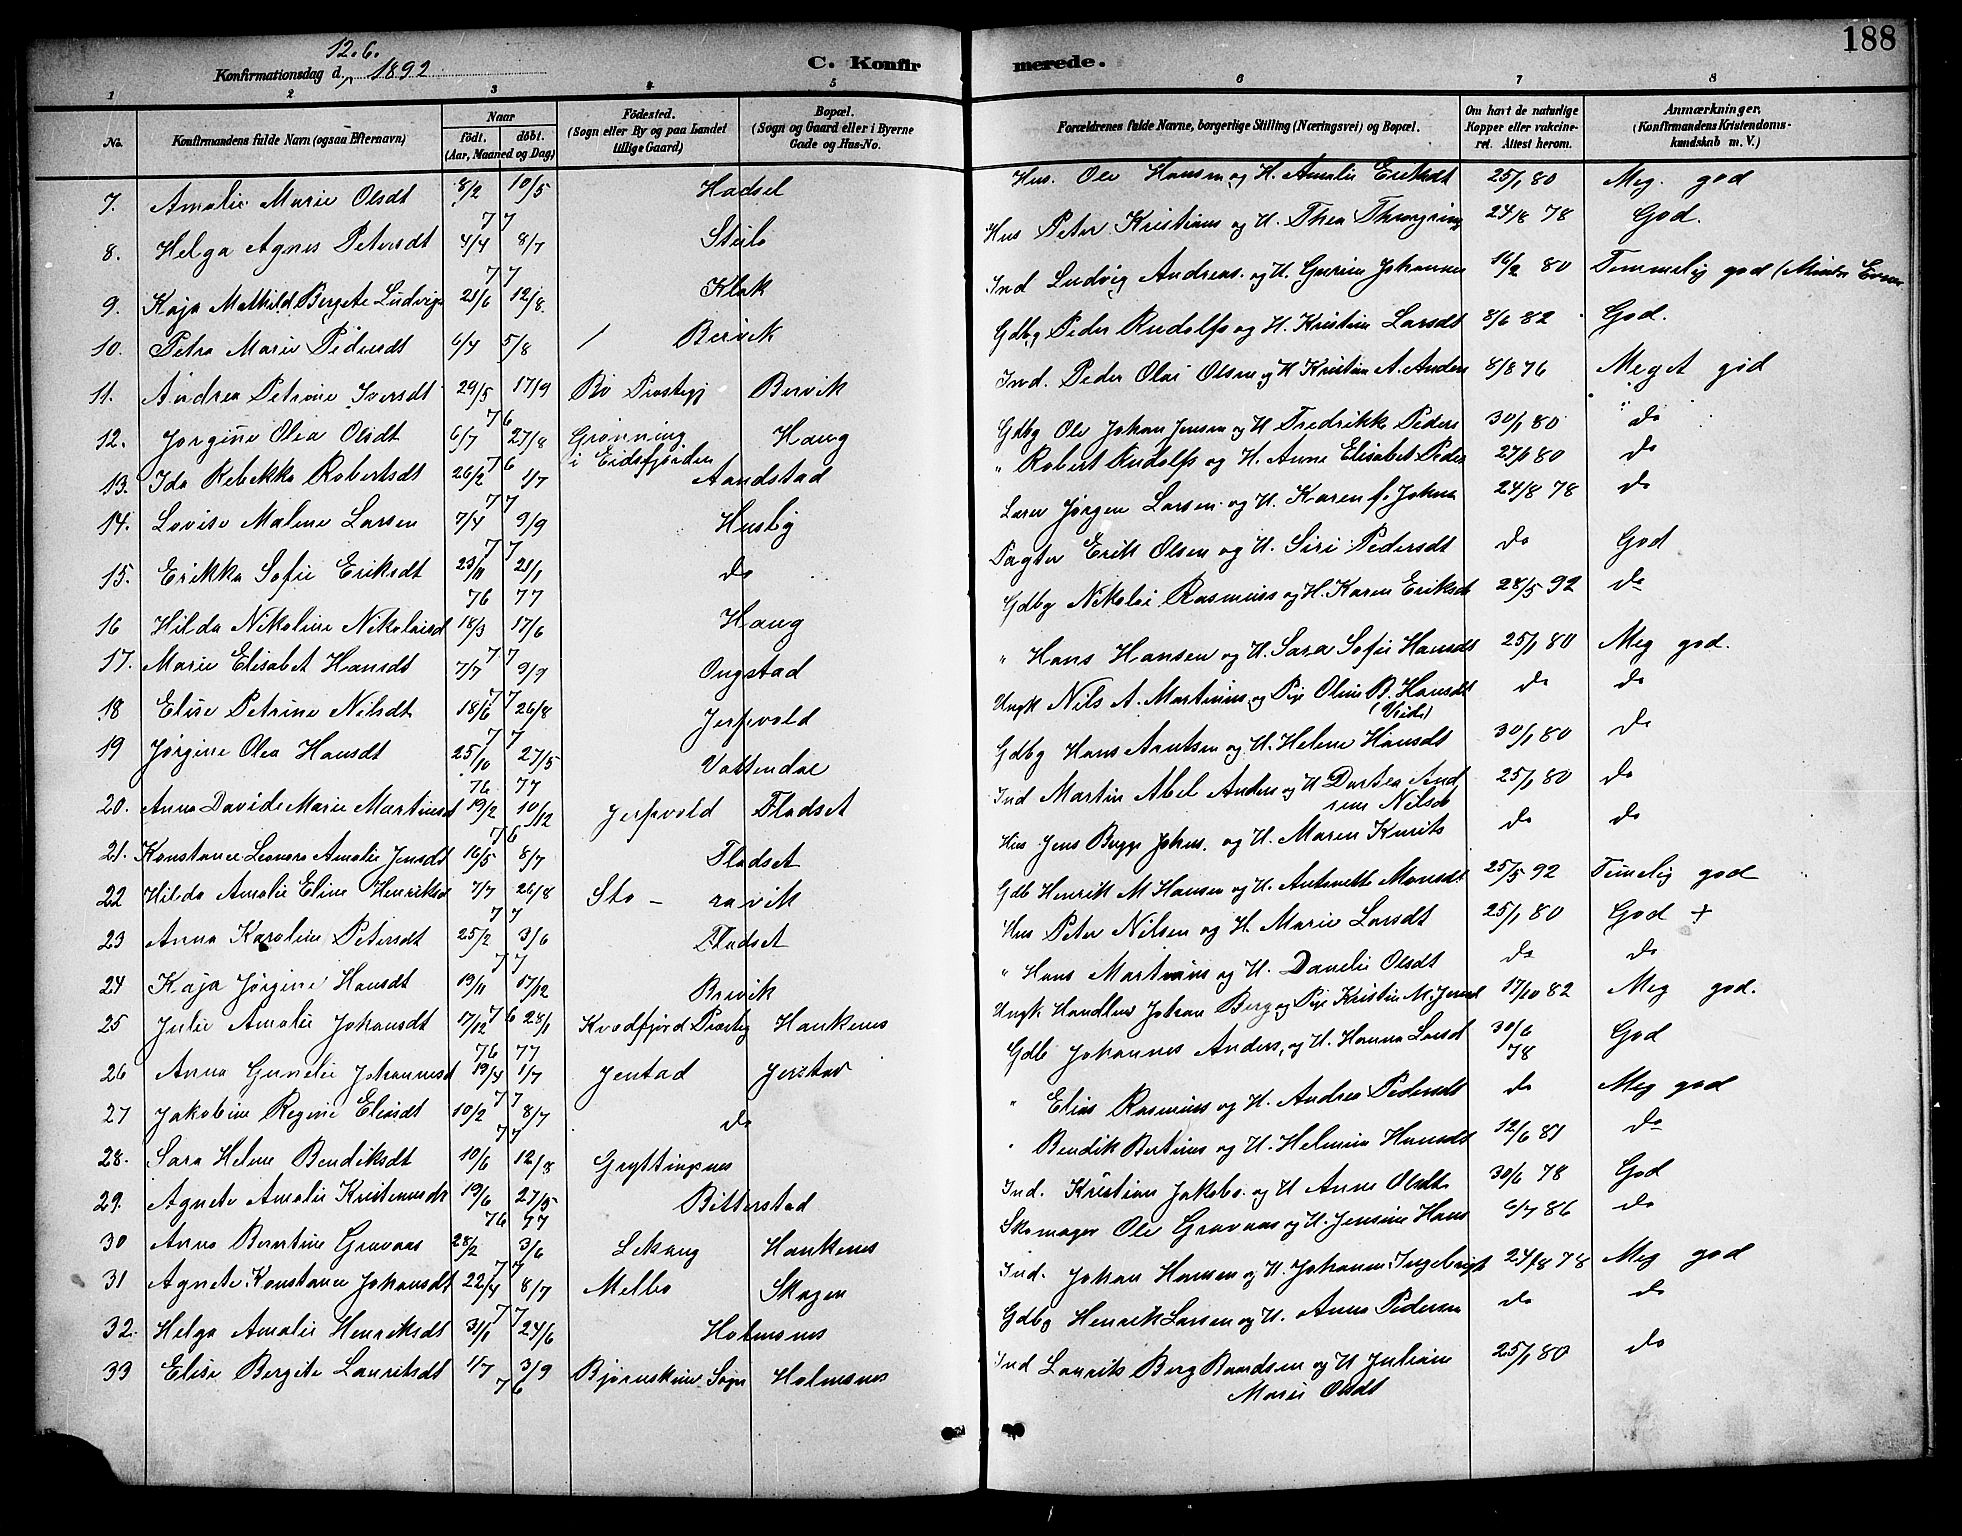 188
12.6.
Konfirmationsdag d. 1892
C. Konfirmerede.
1 2 3 4 5 6 7 8
No.
Konfirmandens fulde Navn (ogsaa Efternavn)
Naar
født. døbt.
(Aar, Maaned og Dag)
Fødested.
(Sogn eller By og paa Landet
tillige Gaard)
Bopæl.
(Sogn og Gaard eller i Byerne
Gade og Hus-No.
Forældrenes fulde Navne, borgerlige Stilling (Næringsvei) og Bopæl.
Om havt de naturlige
Kopper eller vakcine-
ret. Attest herom.
Anmærkninger,
(Konfirmandens Kristendoms-
kundskab m. V.)
7. Amalie Marie Olsdt 8/2 10/5 77 Hadsel Hus. Ole Hansen og H. Amalie Eriksdt 25/1 80 Meg. god
8. Helga Agnes Petersdt 4/4 8/7 77 Steilo Hus Peter Kristians og H. Thea 24/8 78 God.
9. Kaja Mathild Bergete Ludvigs 21/6 12/8 Klak Ind Ludvig Andreas. og H. Gurine Johannes 16/2 80 Temmelig god
10. Petra Marie Pedersdt 6/4 5/8 / Bervik Gdbg Peder Rudolfs og H. Kristine Larsdt 8/6 82 God.
11. Andrea Petrine Iversdt 29/5 17/9 76 Bø Prostegj Bervik Ind. Peder Olai Olsen og H Kristin A. Anders 8/8 76 Meget god
12. Jørgine Olea Olsdt 6/7 27/8 76 Grønning i Eidsfjorden Haug Gdbg Ole Johan Jensen og H Fredrikke Peders 30/1 80 do
13. Ida Rebekka Robertsdt 26/2 1/7 77 Aandstad " Robert Rudolfs og H. Anne Elisabet Peder 27/1 80 do
14. Lovise Malene Larsen 7/4 9/9 77 Husby Lærer Jørgen Larsen og H. Karen f. Johns 24/8 78 do
15. Erikka Sofie Eriksdt 23/11 21/1 76 77 do Pagter Erik Olsen og H. Siri Pedersdt do God
16 Hilda Nikoline Nikolaisd 18/3 17/6 77 Haug Gdbg Nikolai Rasmuss og H. Karen Eriksdt 28/5 92 do
17. Marie Elisabet Hansdt 7/7 9/9 77 Ongstad " Hans Hansen og H. Sara Sofie Hansdt 25/1 80 Meg god.
18 Elise Petrine Nilsdt 18/6 26/8 77 Jerpvold Ungk Nils A. Martinius og Pige Oline B. Hansdt do do
19 Jørgine Olea Hansdt 25/10 27/5 76 77 Vattendal Gdbg Hans Arntsen og H. Helene Hansdt 30/1 80 do
20. Anna Davide Marie Martinsd 19/2 10/12 76 Jerpvold Fladset Ind Martin Abel Anders og H Dortea And 25/1 80 do
21. Konstance Leonora Amalie Jensdt 16/5 8/7 Fladset Hus Jens Bugge Johns. og H. Maren Knuts do do
22 Hilda Amalie Eline Henriksd 7/7 26/8 77 Sto - ravik Gdb Henrik M Hansen og H. Antonette Monsdt 25/5 92 Temelig god
23 Anna Karoline Petersdt 25/2 3/6 77 Fladset Hus Peter Nilsen og H. Marie Larsdt 25/1 80 God +
24 Kaja Jørgine Hansdt 19/11 17/12 76 Brevik " Hans Martinius og H. Danelie Olsdt do do
25 Julie Amalie Johansdt 17/12 28/1 76 77 Kvædfjord Prostegj Haukenes Ungk Handlem Johan Berg og Pige Kristine M. Jensd 17/10 82 Meg god.
26 Anna Gunelie Johannesd 19/4 1/7 77 Jenstad Jenstad Gdb Johannes Anders. og H. Hanna Larsd 30/6 78 God
27 Jakobine Regine Eliasdt 10/2 8/7 77 do " Elias Rasmuss og H. Andrea Pedersdt do Meg god
28. Sara Helene Bendiksdt 10/6 12/8 Gryttingsnes " Bendik Bertinus og H. Helmine Hansdt 12/6 81 do
29. Agnete Amalie Kristensdt 19/6 27/5 76 77 Bitterstad Ind. Kristian Jakobs. og H Anne Olsdt 30/6 78 God
30 Anna Berntine Gravaas 28/2 3/6 77 Lekang Haukenes Skomager Ole Gravaas og H. Jensine Hans 6/7 86 do
31 Agnete Konstance Johansdt 22/4 8/7 77 Melbo Skagen Ind. Johan Hansen og H. Johanna Ingebrigt 24/8 78 Meg god
32. Helga Amalie Henriksdt 31/1 24/6 Holmsnes Gdbg Henrik Larsen og H. Anna Pedersen do do
33 Elise Bergete Lauritsdt 1/7 3/9 76 Bjørnskin Sogn Holmsnes Ind Laurits Berg Baardsen og H Juliane Marie Olsdt 25/1 80 do